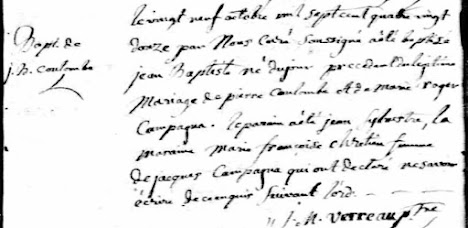 le vingt neuf octobre mil sept cent quatre vingt
Bapt. de
j. B. Coulombe
douze par Nous Curé soussigné a été baptisé
jean Baptiste né du jour precedant du legitime
Mariage de pierre Coulombe et de marie roger
Campagna. le parain a été jean Sylvestre, la
maraine marie françoise chretien femme
de jacques Campagna qui ont declaré ne savoir
écrire de ce enquis suivant l'ord.
J. M. Verreau ptre